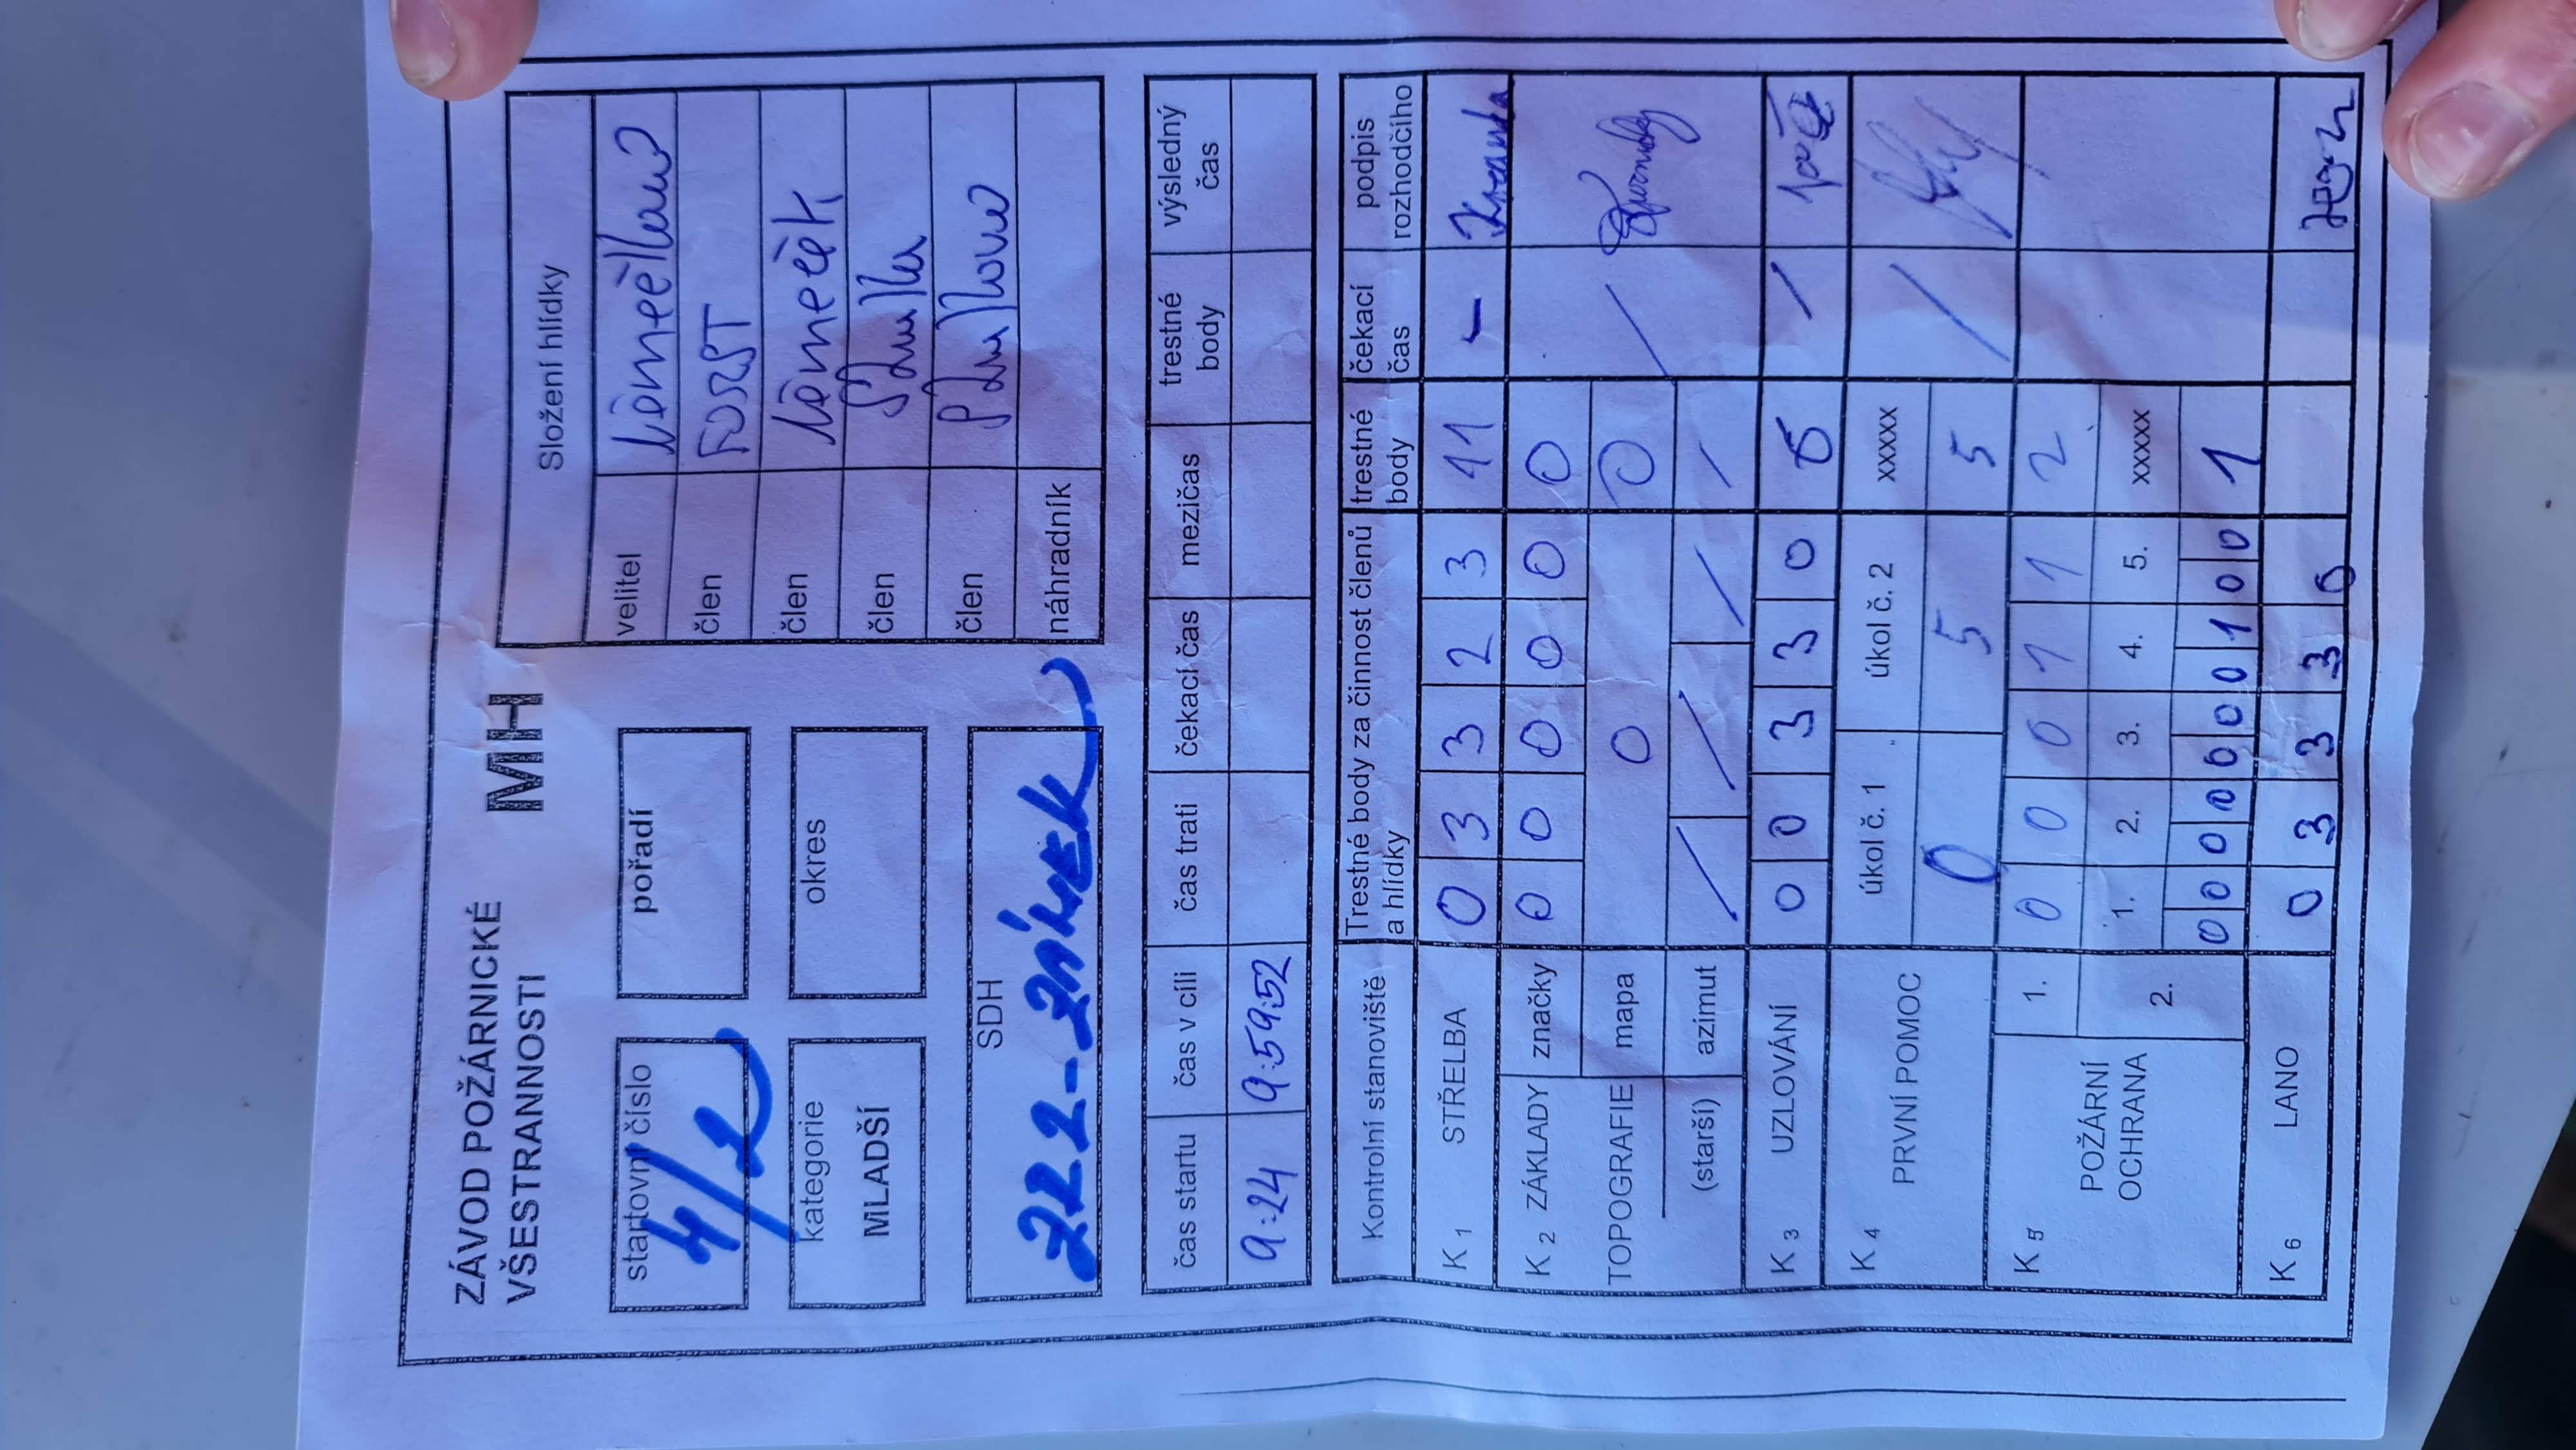 ZÁVOD POŽÁRNICKÉ
VŠESTRANNOSTI MH
startovní číslo
pořadí
kategorie
MLADŠÍ
okres
SDH
Složení hlídky
velitel
člen FORST
člen Němeček
člen
člen
náhradník
čas startu čas v cíli čas trati čekací čas mezičas trestné body výsledný čas
9:24 9:59:52
Kontrolní stanoviště Trestné body za činnost členů a hlídky trestné body čekací čas podpis rozhodčího
K 1 STŘELBA 0 3 3 2 3 11 -
K 2 ZÁKLADY značky 0 0 0 0 0 0
TOPOGRAFIE mapa 0 0 /
(starší) azimut / / / /
K 3 UZLOVÁNÍ 0 0 3 3 0 6 /
K 4 PRVNÍ POMOC úkol č. 1 úkol č. 2 xxxxx
0 5 5 /
K 5 POŽÁRNÍ OCHRANA 1. 0 0 0 1 1 2
2. 1. 2. 3. 4. 5. xxxxx
0 0 0 0 0 0 0 1 0 0 1
K 6 LANO 0 3 3 3 0